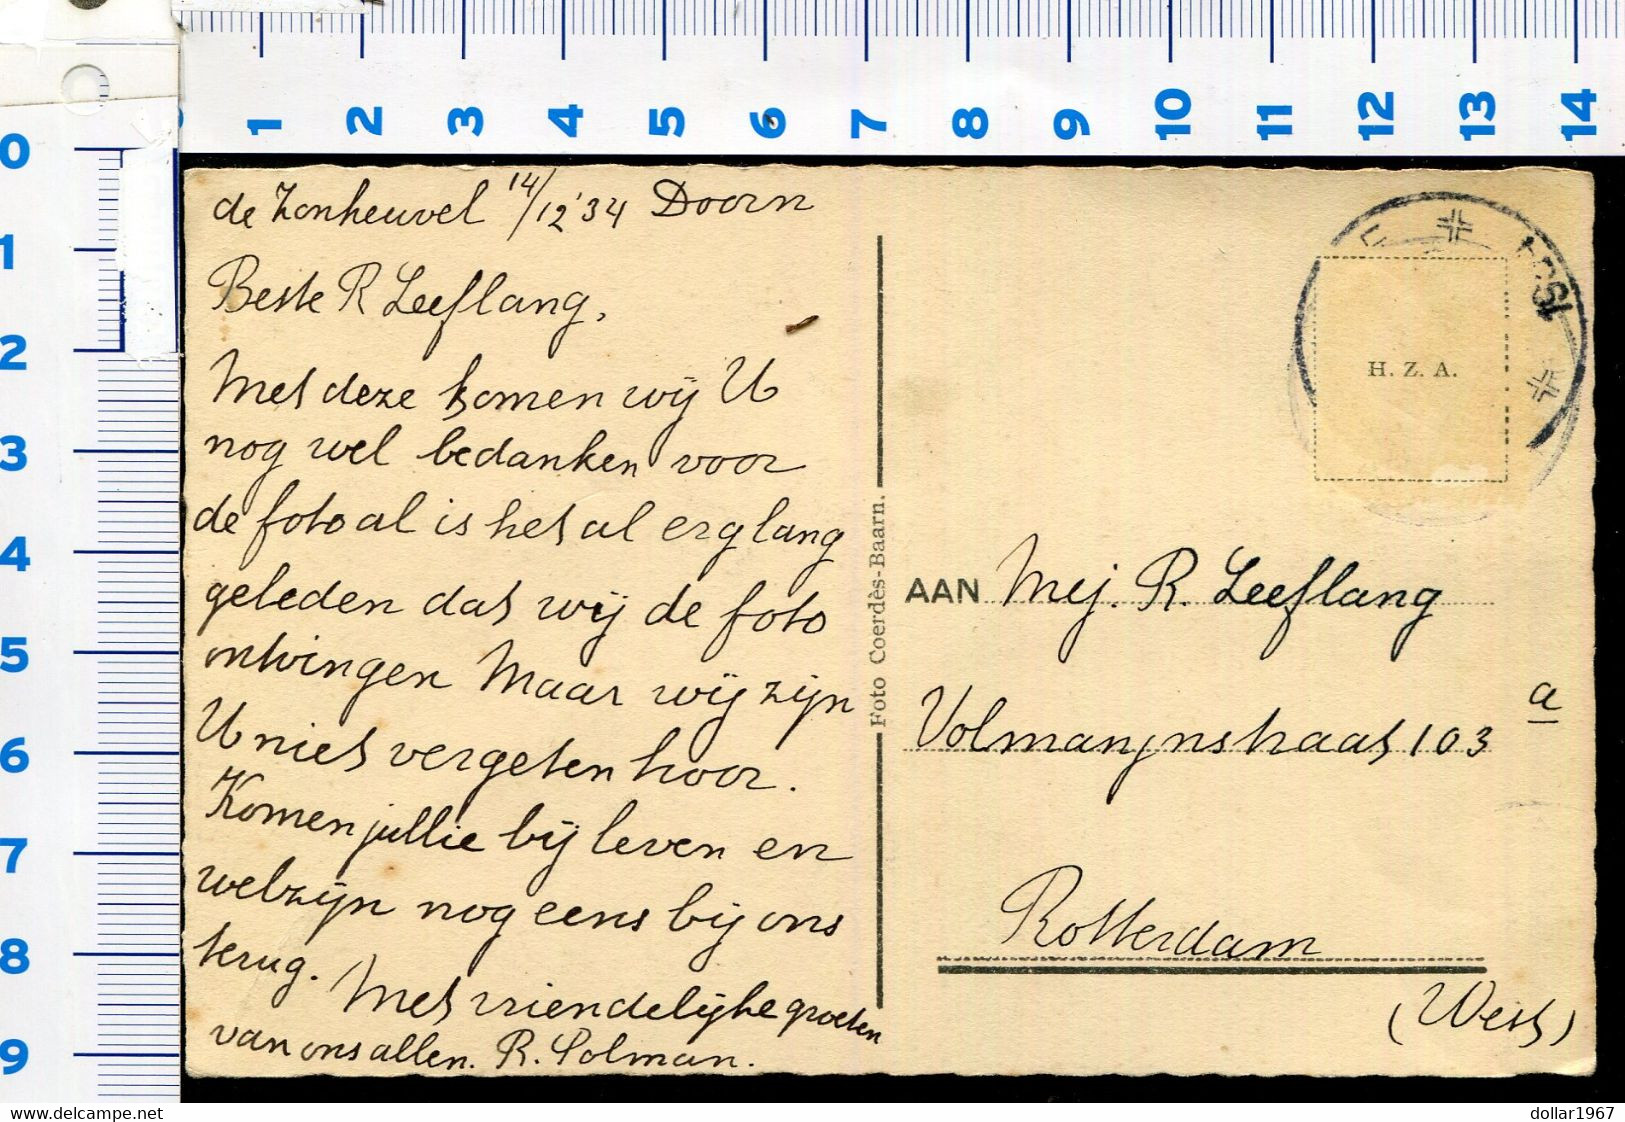 1 2 3 4 5 6 7 8 9 10 11 12 13 14
0
1
2
3
4
5
6
7
8
9
de Zonheuvel 14/12 '34 Doorn
Beste R Leeflang,
Met deze komen wij U
nog wel bedanken voor
de foto al is het al erg lang
geleden dat wij de foto
ontvingen Maar wij zijn
U niet vergeten hoor.
Komen jullie bij leven en
welzijn nog eens bij ons
terug. Met vriendelijke groeten
van ons allen. R. Polman.
Foto Coerdès-Baarn.
H. Z. A.
AAN Mej. R. Leeflang
Volmarijnstraat 103 a
Rotterdam
(West)
dollar1967